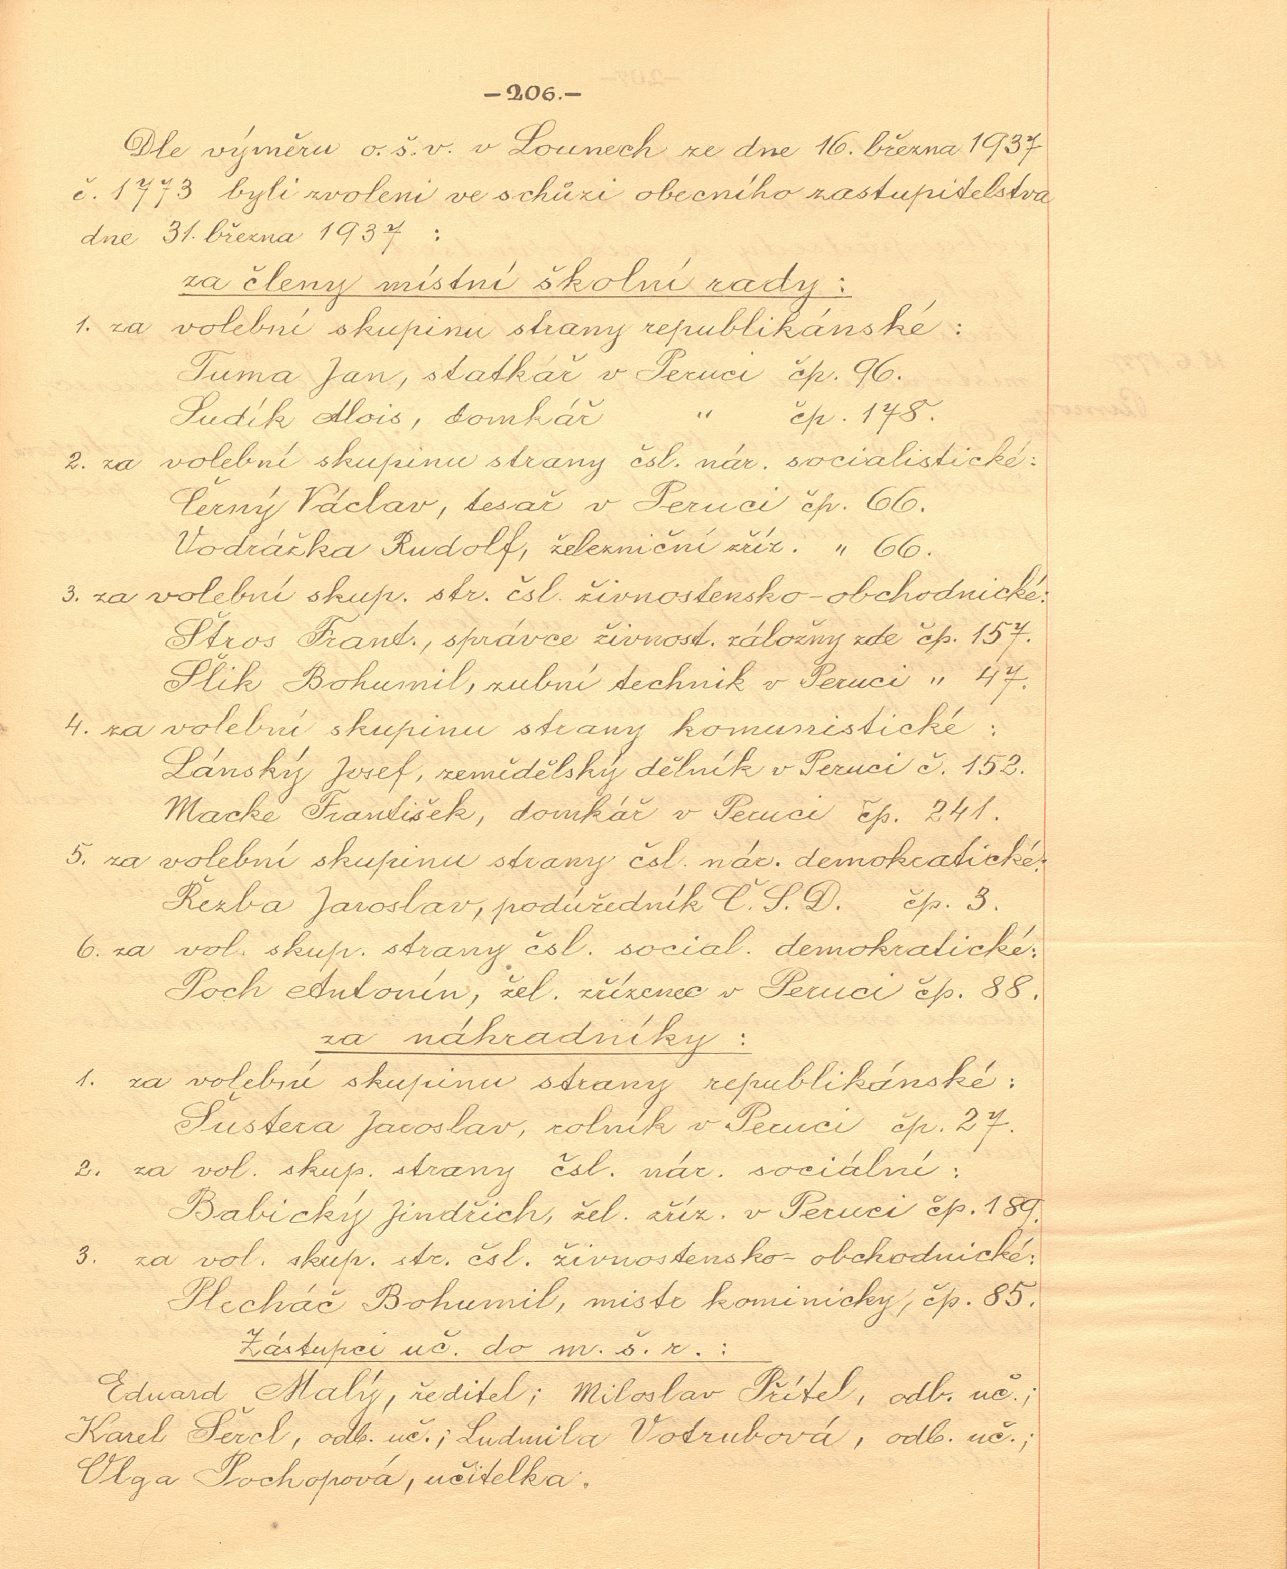 -206.-
Dle výměru o. š. v. v Lounech ze dne 16. března 1937
č. 1773 byli zvoleni ve schůzi obecního zastupitelstva
dne 31. března 1937 :
za členy místní školní rady :
1. za volební skupinu strany republikánské :
Tuma Jan, statkář v Peruci čp. 96.
Ludík Alois, domkář " čp. 178.
2. za volební skupinu strany čsl. nár. socialistické :
Černý Václav, tesař v Peruci čp. 66.
Vodrážka Rudolf, železniční zříz. " 66.
3. za volební skup. str. čsl. živnostensko-obchodnické:
Štros Frant., správce živnost. záložny zde čp. 157.
Šlik Bohumil, zubní technik v Peruci " 47.
4. za volební skupinu strany komunistické :
Lánský Josef, zemědělský dělník v Peruci č. 152.
Macke František, domkář v Peruci čp. 241.
5. za volební skupinu strany čsl. nár. demokratické:
Řezba Jaroslav, podúředník Č. S. D. čp. 3.
6. za vol. skup. strany čsl. social. demokratické:
Poch Antonín, žel. zřízenec v Peruci čp. 88.
za náhradníky :
1. za volební skupinu strany republikánské :
Šustera Jaroslav, rolník v Peruci čp. 27.
2. za vol. skup. strany čsl. nár. sociální :
Babický Jindřich, žel. zříz. v Peruci čp. 189.
3. za vol. skup. str. čsl. živnostensko-obchodnické:
Plecháč Bohumil, mistr kominický, čp. 85.
Zástupci uč. do m. š. r. :
Eduard Malý, ředitel; Miloslav Přítel, odb. uč.;
Karel Šercl, odb. uč.; Ludmila Votrubová, odb. uč.;
Olga Pochopová, učitelka.